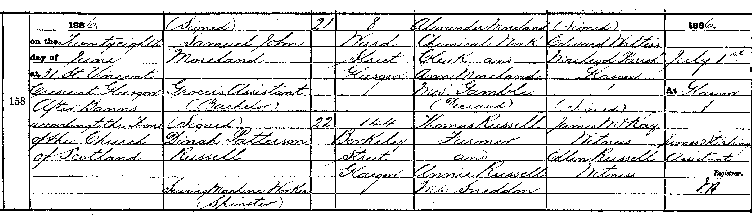 158
1886.
on the Twentyeighth
day of June
at 31 St Vincent
Crescent Glasgow
After Banns
according to the Forms
of the Church
of Scotland
(Signed)
Samuel John
Moreland
Grocer's Assistant
(Bachelor)
(Signed)
Dinah Patterson
Russell
Sewing Machine Worker
(Spinster)
21
22
8
Street
Glasgow
144
Berkeley
Street
Glasgow
Alexander Moreland
Chemical Work
Clerk and
Ann Moreland
M.S. Gamble
(Deceased)
Thomas Russell
Farmer
and
Annie Russell
M.S. Sneddon
(Signed)
Edward
(Signed)
Witness
Ellen Russell
Witness
1886.
July 1st
At Glasgow
James
Assistant
Registrar.